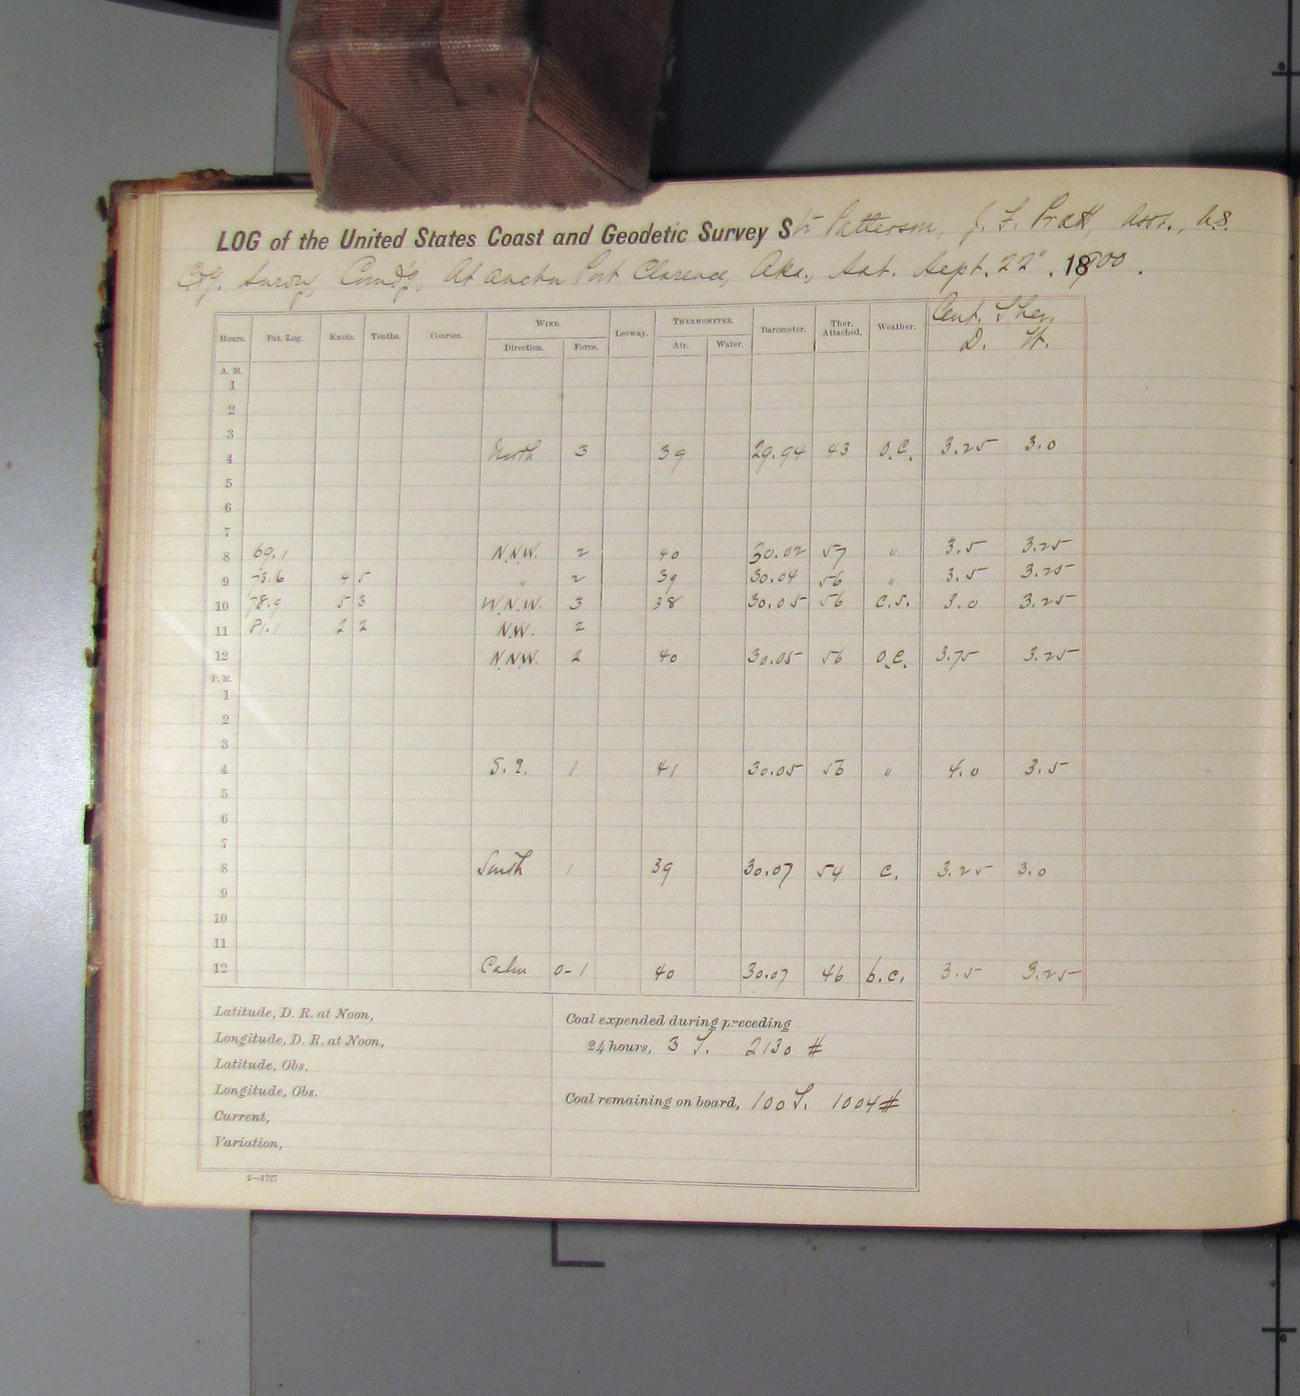 LOG of the United States Coast and Geodetic Survey Str Patterson, J. F. Pratt, Asst., U.S.
C&G. Survey, Comd'g, At anchor Port Clarence, Aka., Sat. Sept. 22", 1900.
Cent. Ther.
Hours. Pat. Log. Knots. Tenths. Courses. WIND. Leeway. THERMOMETER. Barometer. Ther. Attached. Weather. D. W.
Direction. Force. Air. Water.
A. M.
1
2
3
4 North 3 39 29.94 43 O.C. 3.25 3.0
5
6
7
8 69.1 N.N.W. 2 40 30.02 57 " 3.5 3.25
9 73.6 4 5 " 2 39 30.04 56 " 3.5 3.25
10 78.9 5 3 W.N.W. 3 38 30.05 56 C.S. 3.0 3.25
11 81.1 2 2 N.W. 2
12 N.N.W. 2 40 30.05 56 O.C. 3.75 3.25
P. M.
1
2
3
4 S.E. 1 41 30.05 53 " 4.0 3.5
5
6
7
8 South 1 39 30.07 54 C. 3.25 3.0
9
10
11
12 Calm 0-1 40 30.07 46 b.c. 3.5 3.25
Latitude, D. R. at Noon,
Longitude, D. R. at Noon,
Latitude, Obs.
Longitude, Obs.
Current,
Variation,
Coal expended during preceding
24 hours, 3 T. 2130 #
Coal remaining on board, 100 T. 1004 #
2—1727